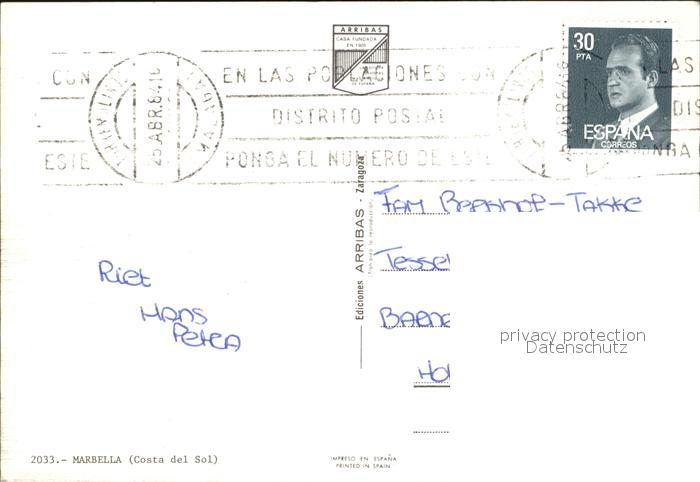 ARRIBAS
CASA FUNDADA
EN 1905
30
PTA
ESPAÑA
CORREOS
CON
EN LAS POBLACIONES CON
LAS
DISTRITO POSTAL
DIS
ESTE
PONGA EL NUMERO DE ESTE
NGA
25 ABR. 84.16
MALAGA
Ediciones ARRIBAS - Zaragoza
Prohibida la reproducción
FAM BERKHOF-TAKKE
TESSEL
BARNE
HOL
Riet
Hans
Petra
privacy protection
Datenschutz
2033.- MARBELLA (Costa del Sol)
IMPRESO EN ESPAÑA
PRINTED IN SPAIN